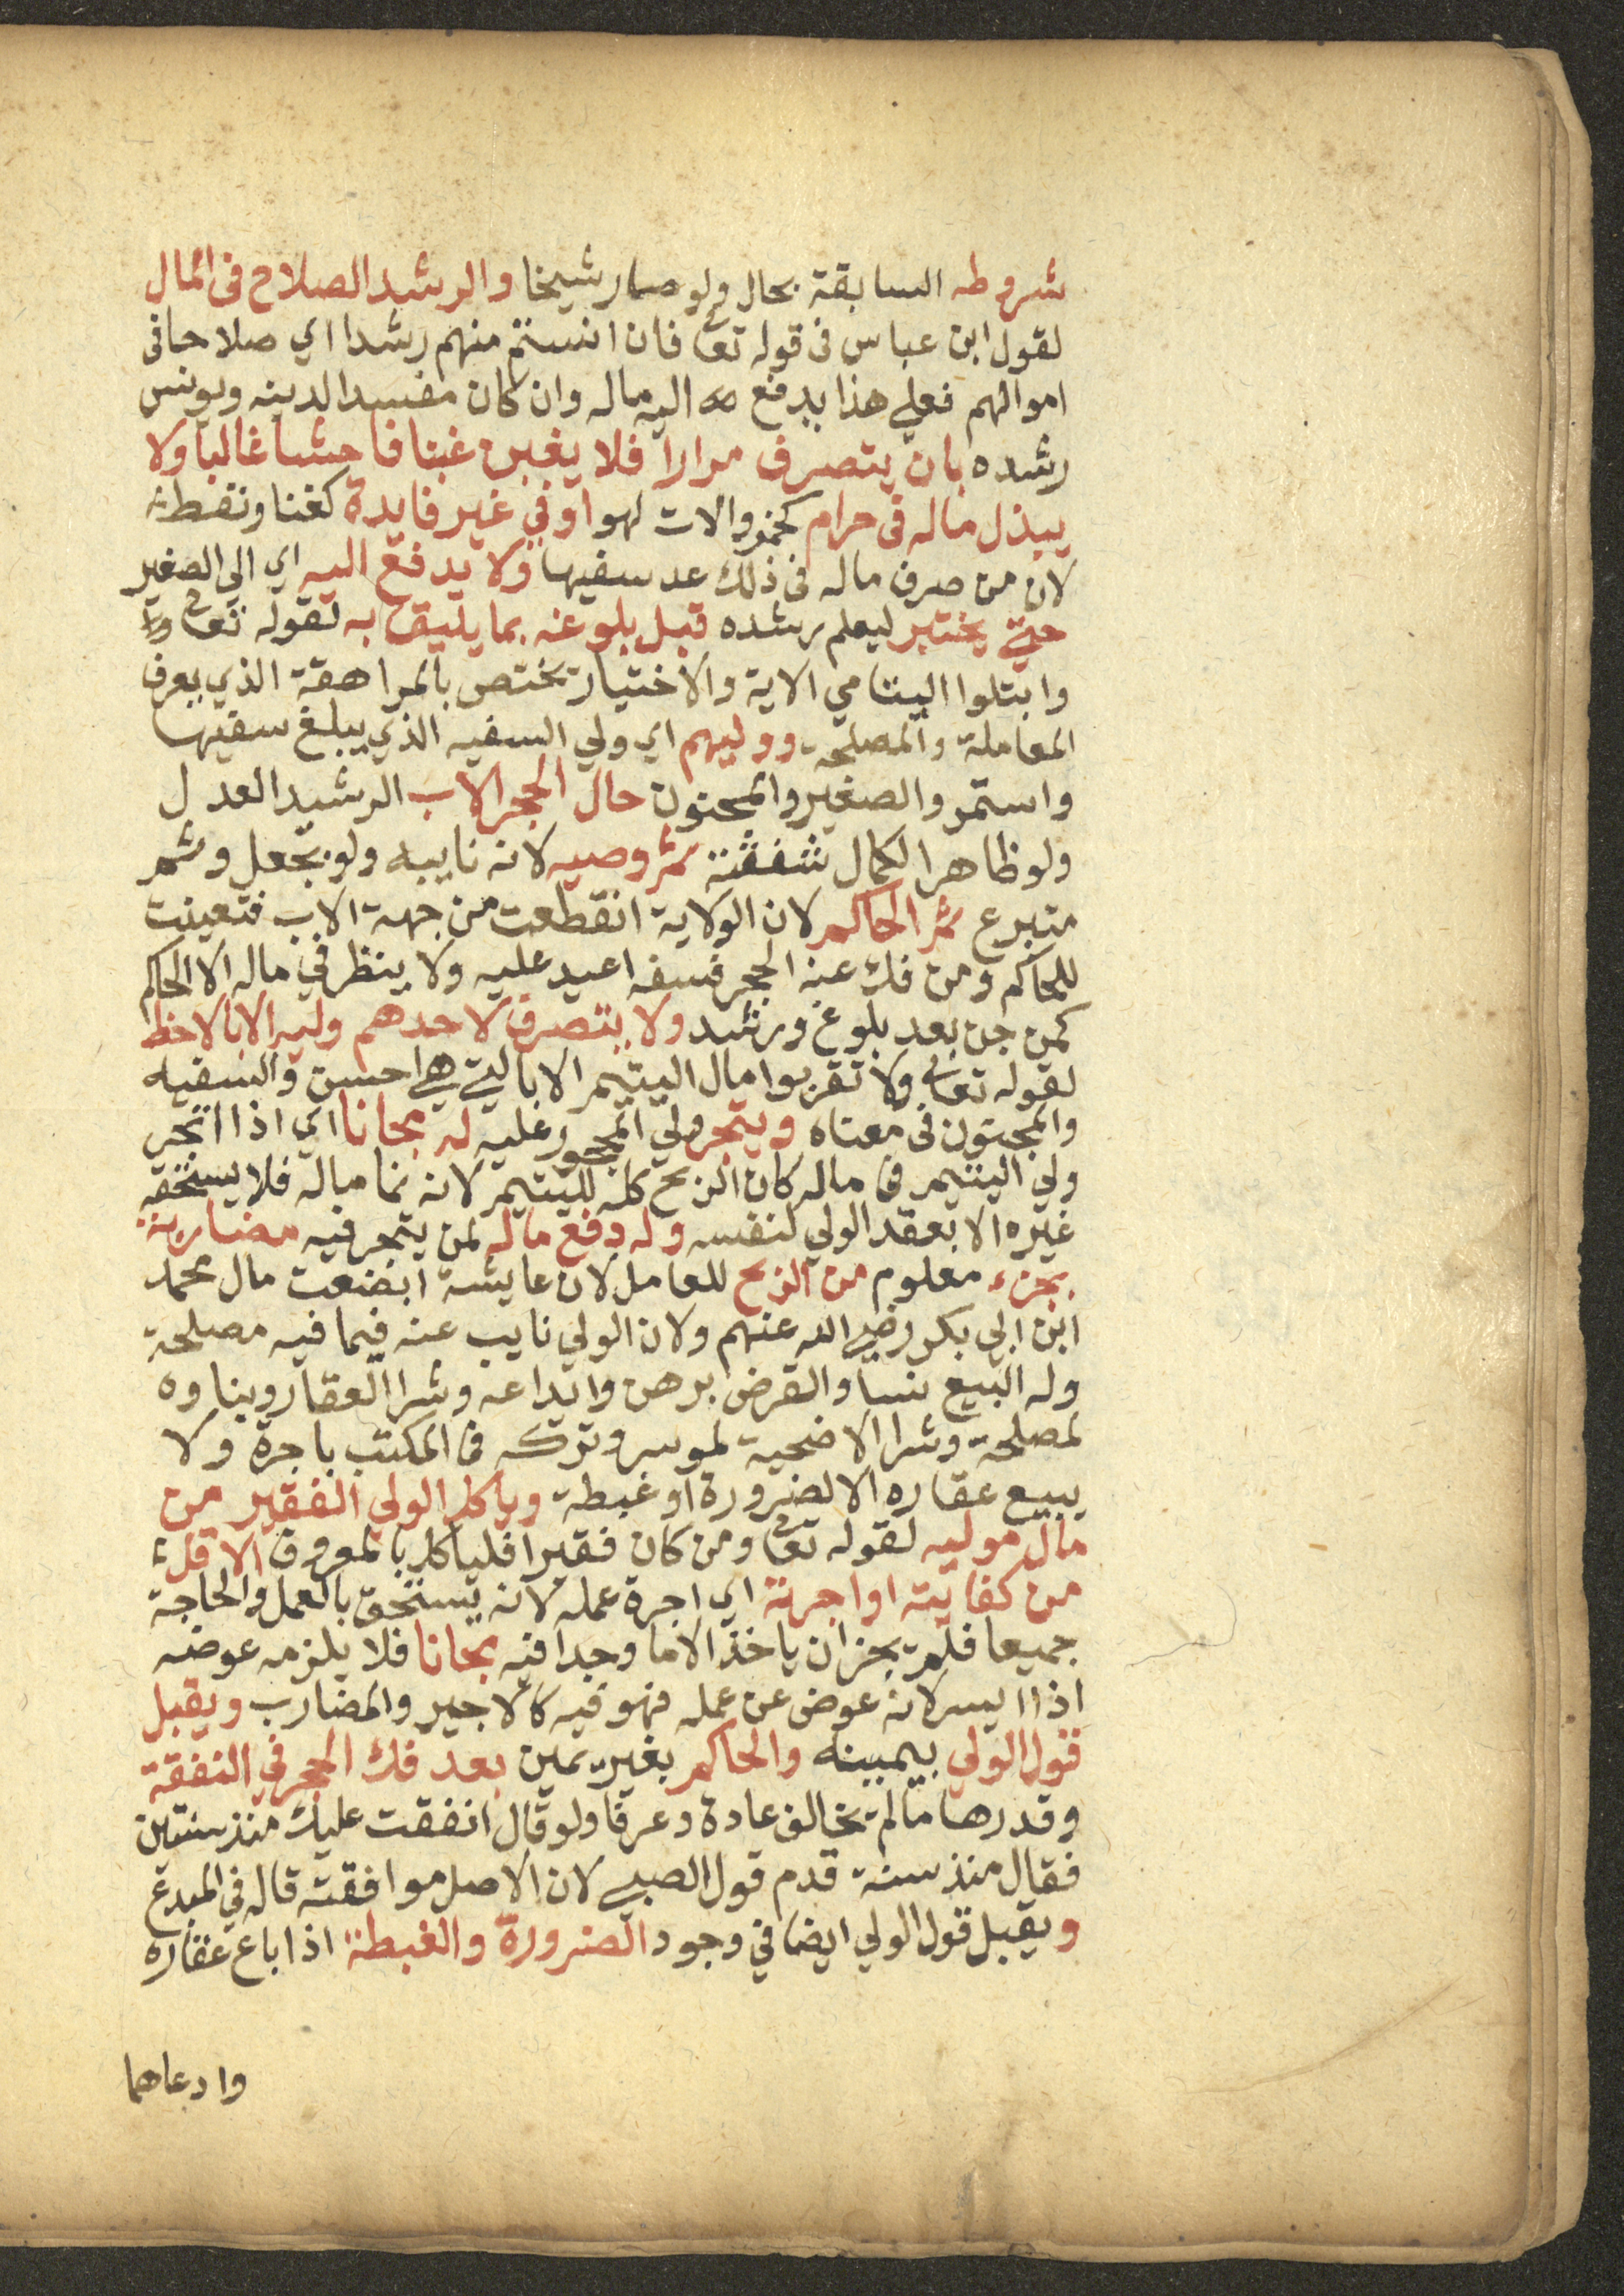 شروطه السابقة بحال ولو صار شيخا والرشد الصلاح فى المال
لقول ابن عباس فى قوله تعا فان انستم منهم رشدا اي صلاحا فى
اموالهم فعلي هذا يدفع اليه ماله وان كان مفسدا لدينه ويونس
رشده بان يتصرف مرارا فلا يغبن غبنا فاحشا غالبا ولا
يبذل ماله فى حرام كخمر والات لهو او في غير فايدة كغنا ونفط
لان من صرف ماله فى ذلك عد سفيها ولا يدفع اليه اي الي الصغير
حتي يختبر ليعلم رشده قبل بلوغه بما يليق به لقوله تعا
وابتلوا اليتامي الاية والاختبار يختص بالمراهقة الذي يعرف
المعاملة والمصلحة ووليهم اي ولي السفيه الذي يبلغ سفيها
واستمر والصغير والمجنون حال الحجر الاب الرشيد العدل
ولو ظاهرا لكمال شفقته ثم وصيه لانه نايبه ولو بجعل وثم
متبرع ثم الحاكم لان الولاية انقطعت من جهة الاب فتعينت
للحاكم ومن فك عنه الحجر فسفه اعيد عليه ولا ينظر في ماله الا الحاكم
كمن جن بعد بلوغ ورشد ولا يتصرف لاحدهم وليه الا بالاحظ
لقوله تعالى ولا تقربوا مال اليتيم الا بالتي هي احسن والسفيه
والمجنون فى معناه ويتجر ولي المحجور عليه له مجانا اي اذا اتجر
ولي اليتيم فى ماله كان الربح كله لليتيم لانه نما ماله فلا يستحقه
غيره الا بعقد الولي لنفسه وله دفع ماله لمن يتجر فيه مضاربة
بجزء معلوم من الربح للعامل لان عايشة ابضعت مال محمد
ابن ابي بكر رضي الله عنهم ولان الولي نايب عنه فيما فيه مصلحة
وله البيع نسا والقرض برهن وايداعه وشرا العقار وبناوه
لمصلحة وشرا الاضحية لموسر وتركه فى المكتب باجرة ولا
يبيع عقاره الا لضرورة او غبطة وياكل الولي الفقير من
مال موليه لقوله تعا ومن كان فقيرا فلياكل بالمعروف الاقل
من كفايته او اجرته اي اجرة عمله لانه يستحق بالعمل والحاجة
جميعا فلم يجز ان ياخذ الا ما وجدا فيه مجانا فلا يلزمه عوضه
اذا ايسر لانه عوض عن عمله فهو فيه كالاجير والمضارب ويقبل
قول الولي بيمينه والحاكم بغير يمين بعد فك الحجر في النفقة
وقدرها ما لم يخالف عادة وعرفا ولو قال انفقت عليك منذ سنتين
فقال منذ سنة قدم قول الصبي لان الاصل موافقته قاله في المبدع
ويقبل قول الولي ايضا في وجود الضرورة والغبطة اذا باع عقاره
وادعاهما